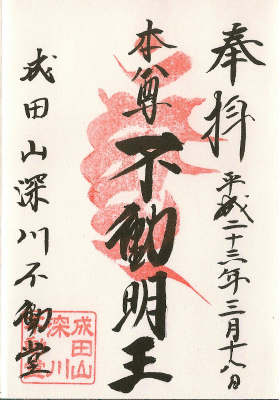 奉拝
平成二十三年三月十八日
本尊
不動明王
成田山深川不動堂
成田山
深川